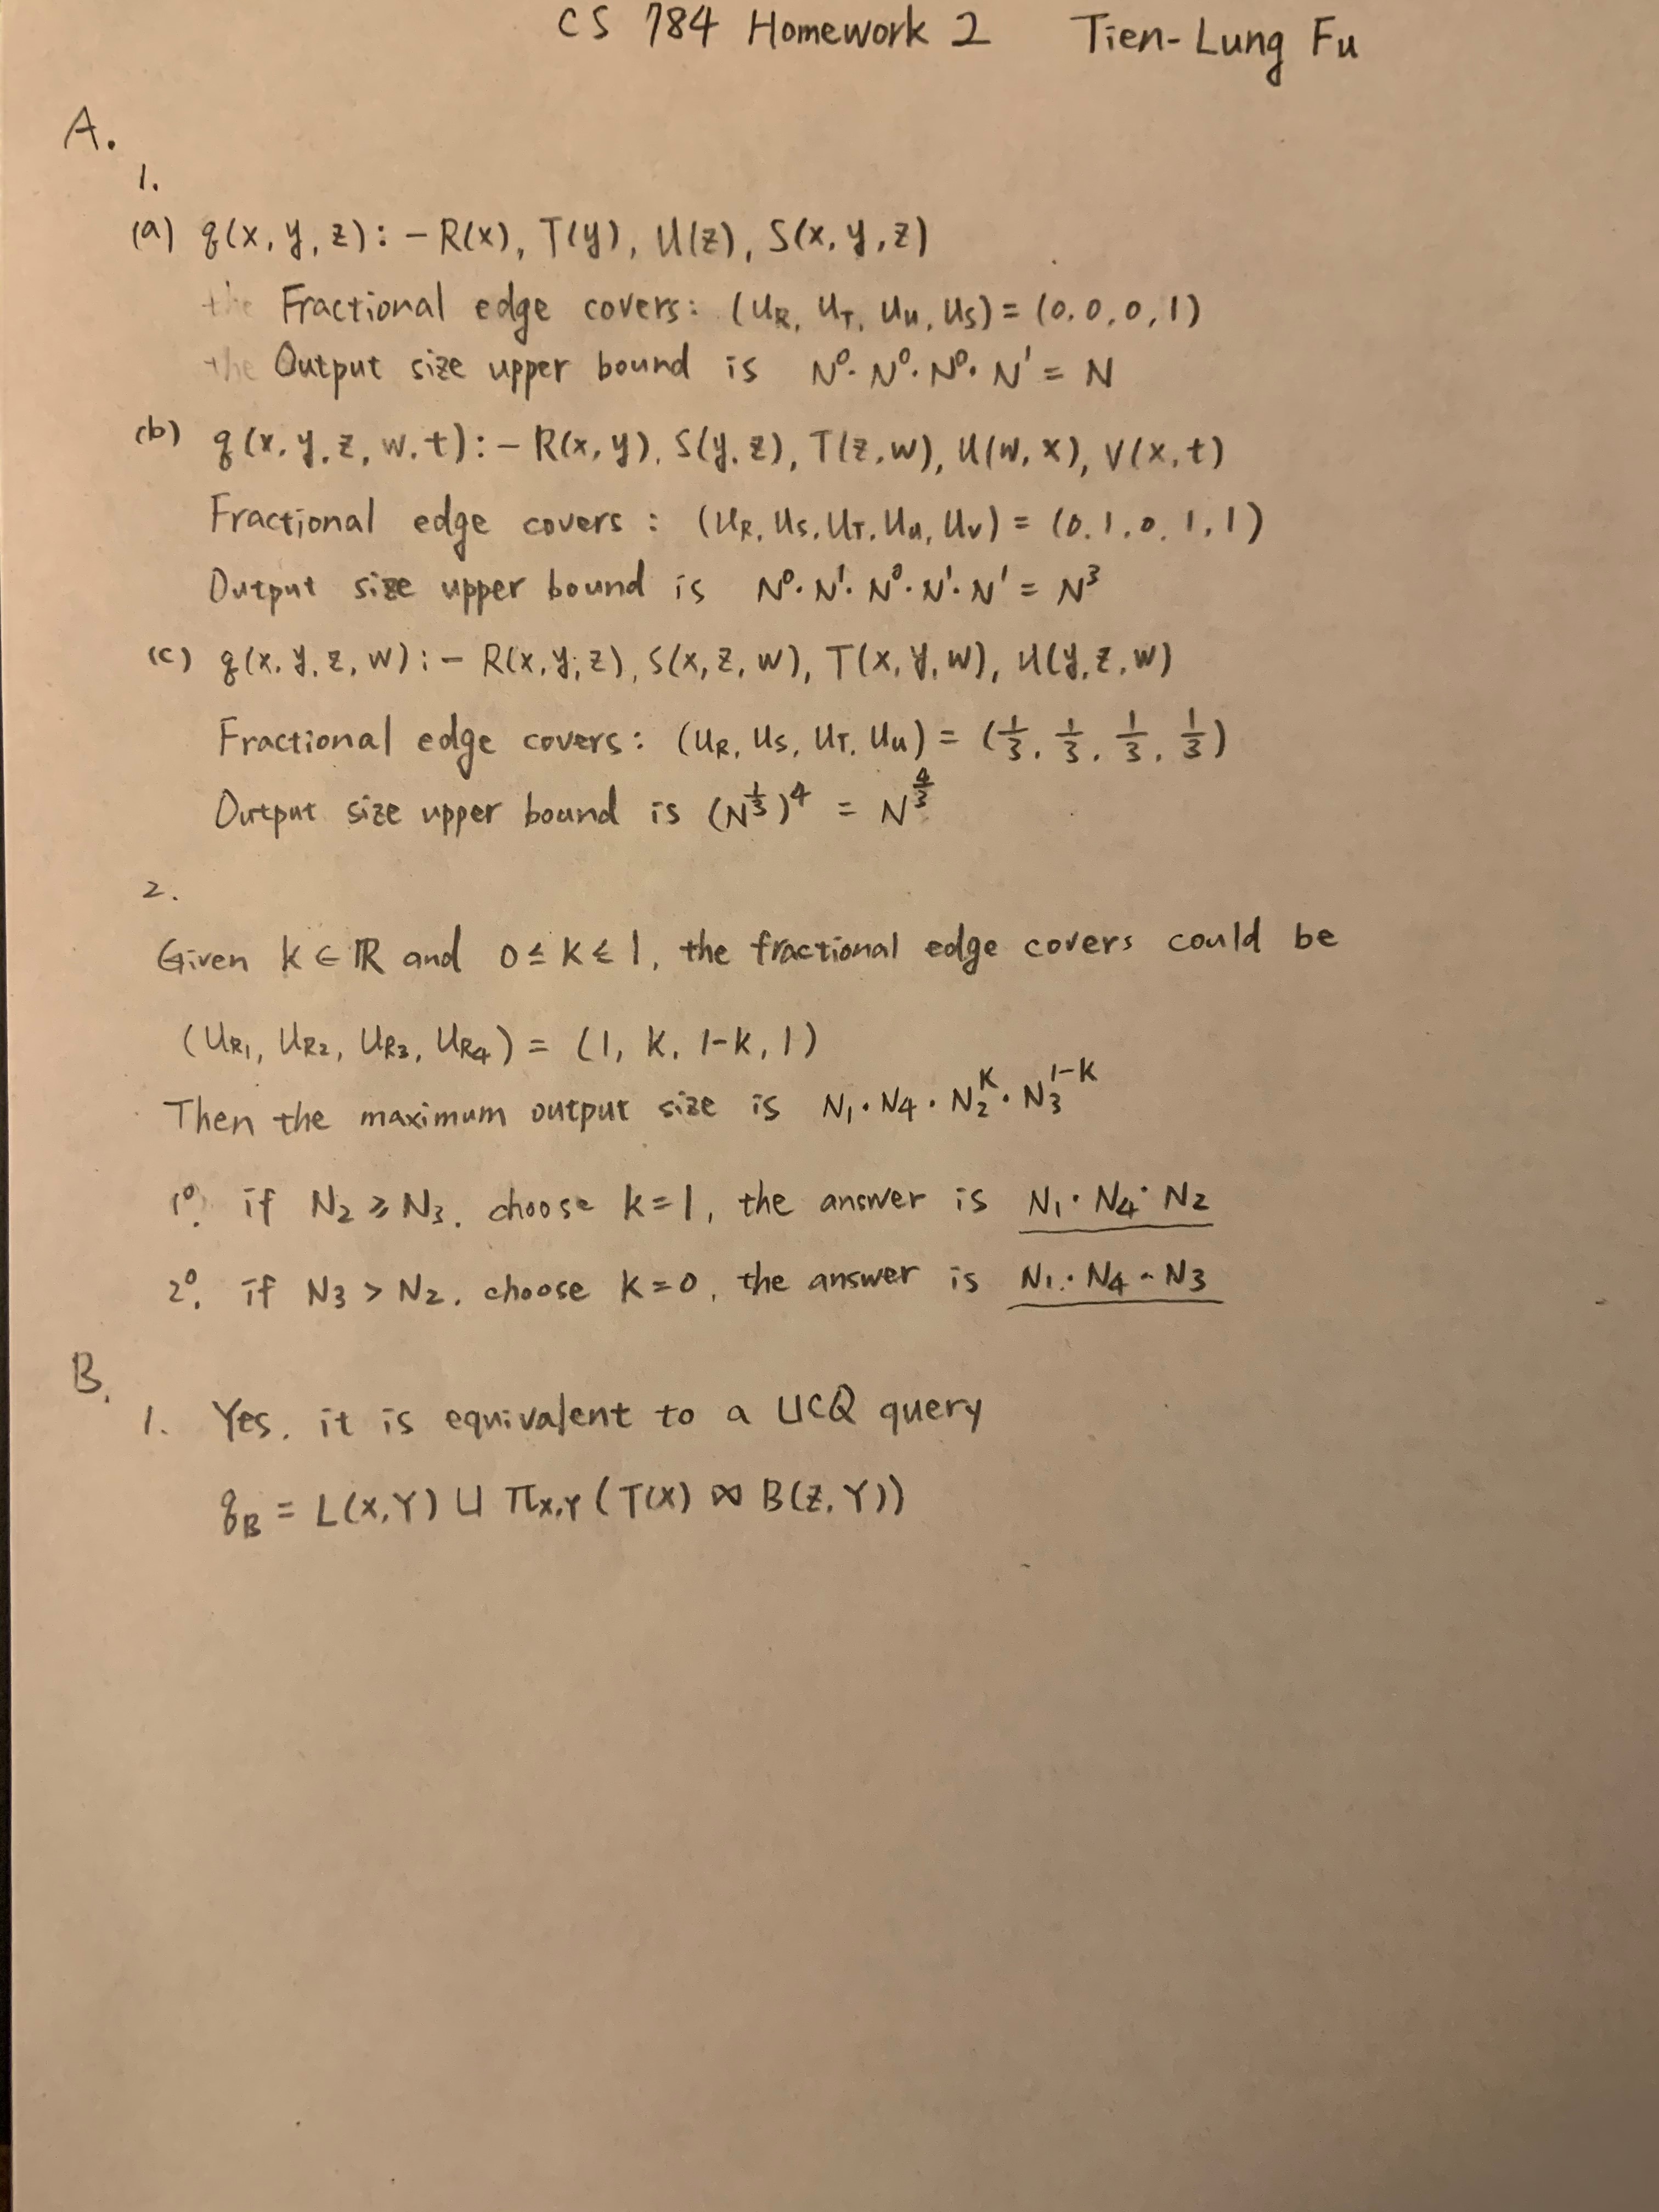 CS 784 Homework 2 Tien-Lung Fu
A.
1.
(a) q(x, y, z) :- R(x), T(y), U(z), S(x, y, z)
the Fractional edge covers: (u_R, u_T, u_U, u_S) = (0, 0, 0, 1)
the Output size upper bound is N^0 · N^0 · N^0 · N^1 = N
(b) q(x, y, z, w, t) :- R(x, y), S(y, z), T(z, w), U(w, x), V(x, t)
Fractional edge covers : (u_R, u_S, u_T, u_U, u_V) = (0, 1, 0, 1, 1)
Output size upper bound is N^0 · N^1 · N^0 · N^1 · N^1 = N^3
(c) q(x, y, z, w) :- R(x, y, z), S(x, z, w), T(x, y, w), U(y, z, w)
Fractional edge covers: (u_R, u_S, u_T, u_U) = (1/3, 1/3, 1/3, 1/3)
Output size upper bound is (N^{1/3})^4 = N^{4/3}
2.
Given k ∈ ℝ and 0 ≤ k ≤ 1, the fractional edge covers could be
(U_{R1}, U_{R2}, U_{R3}, U_{R4}) = (1, k, 1-k, 1)
Then the maximum output size is N_1 · N_4 · N_2^k · N_3^{1-k}
1°. if N_2 ≥ N_3, choose k=1, the answer is N_1 · N_4 · N_2
2°. if N_3 > N_2, choose k=0, the answer is N_1 · N_4 · N_3
B.
1. Yes, it is equivalent to a UCQ query
q_B = L(X,Y) ∪ π_{X,Y} (T(X) ⋈ B(Z,Y))